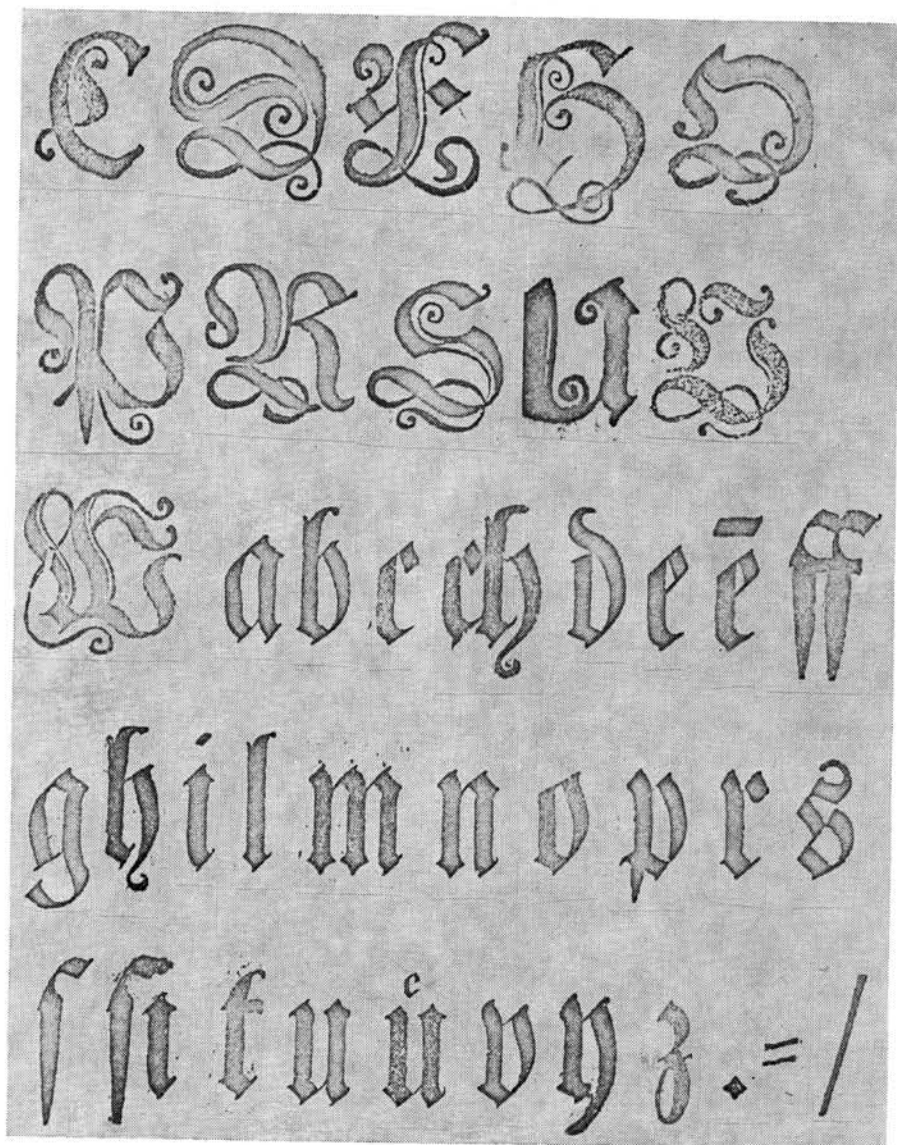 C D
P R S U V
W a b c ch d e ē ff
g h i l m n o p r s
ſ ſi t u uͤ v y z . = /